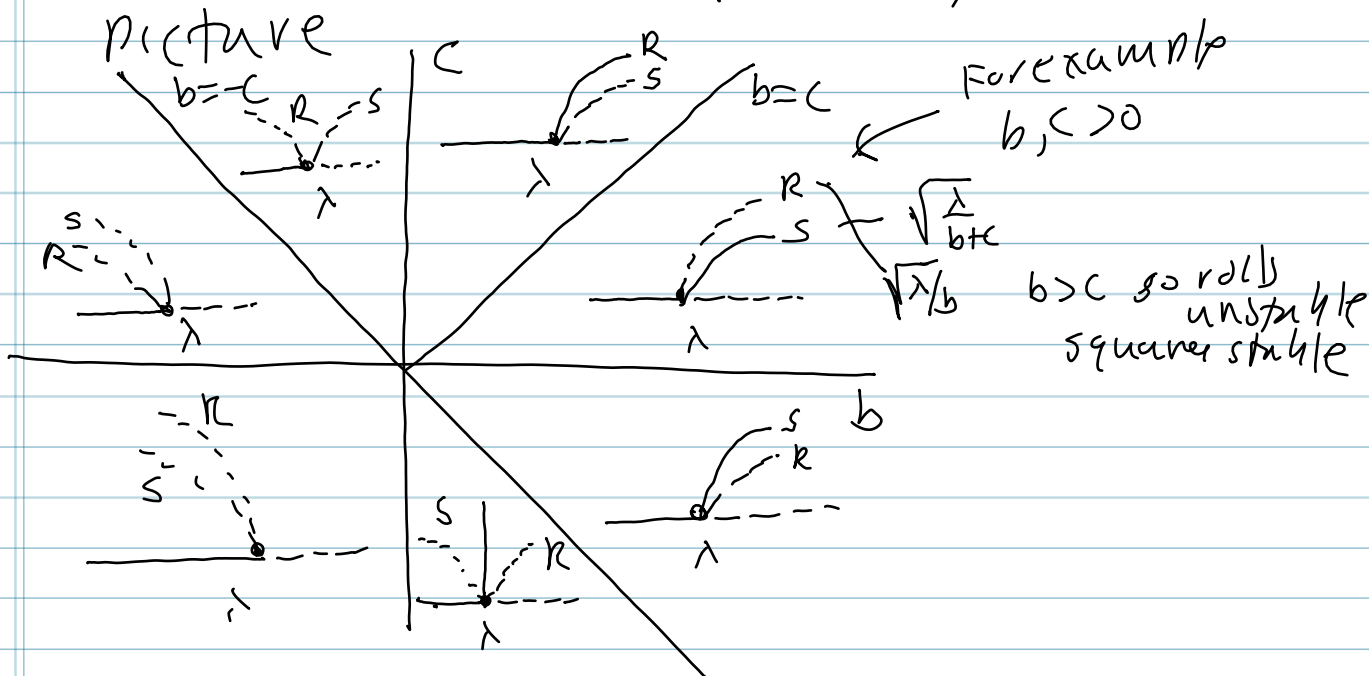 Picture
C
b=-C
R S
λ
R
S
λ
b=C
For example
b, C >0
S
R
λ
R
S
√λ/(b+c)
√λ/b
λ
b>c so rolls
unstable
squares stable
b
R
S
λ
S
R
λ
S
R
λ